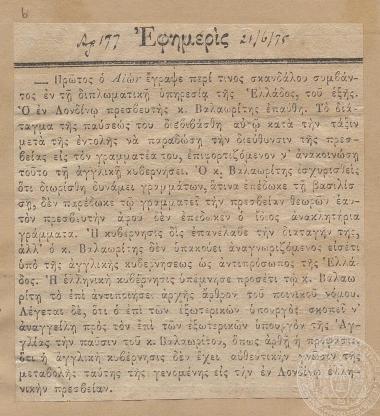 6
Ἀρ 177 Ἐφημερὶς 21/6/75
— Πρῶτος ὁ Αἰὼν ἔγραψε περί τινος σκανδάλου συμβάν-
τος ἐν τῇ διπλωματικῇ ὑπηρεσίᾳ τῆς Ἑλλάδος, τοῦ ἑξῆς.
Ὁ ἐν Λονδίνῳ πρεσβευτὴς κ. Βαλαωρίτης ἐπαύθη. Τὸ διά-
ταγμα τῆς παύσεώς του διεβιβάσθη αὐτῷ κατὰ τὴν τάξιν
μετὰ τῆς ἐντολῆς νὰ παραδώσῃ τὴν διεύθυνσιν τῆς πρεσ-
βείας εἰς τὸν γραμματέα του, ἐπιφορτιζόμενον ν' ἀνακοινώσῃ
τοῦτο τῇ ἀγγλικῇ κυβερνήσει. Ὁ κ. Βαλαωρίτης ἰσχυρισθεὶς
ὅτι διωρίσθη δυνάμει γραμμάτων, ἅτινα ἐπέδωκε τῇ βασιλίσ-
σῃ, δὲν παρέδωκε τῷ γραμματεῖ τὴν πρεσβείαν θεωρῶν ἑαυ-
τὸν πρεσβευτὴν ἀφοῦ δὲν ἐπέδωκεν ὁ ἴδιος ἀνακλητήρια
γράμματα. Ἡ κυβέρνησις δὶς ἐπανέλαβε τὴν διαταγήν της,
ἀλλ' ὁ κ. Βαλαωρίτης δὲν ὑπακούει ἀναγνωριζόμενος εἰσέτι
ὑπὸ τῆς ἀγγλικῆς κυβερνήσεως ὡς ἀντιπρόσωπος τῆς Ἑλλά-
δος. Ἡ ἑλληνικὴ κυβέρνησις ὑπέμνησε προσέτι τῷ κ. Βαλαω-
ρίτῃ τὸ ἐπὶ ἀντιποιήσει ἀρχῆς ἄρθρον τοῦ ποινικοῦ νόμου.
Λέγεται δὲ, ὅτι ὁ ἐπὶ τῶν ἐξωτερικῶν ὑπουργὸς σκοπεῖ ν'
ἀναγγείλῃ πρὸς τὸν ἐπὶ τῶν ἐξωτερικῶν ὑπουργὸν τῆς Ἀγ-
γλίας τὴν παῦσιν τοῦ κ. Βαλαωρίτου, ὅπως ἀρθῇ ἡ πρόφασις,
ὅτι ἡ ἀγγλικὴ κυβέρνησις δὲν ἔχει αὐθεντικὴν γνῶσιν τῆς
μεταβολῆς ταύτης τῆς γενομένης εἰς τὴν ἐν Λονδίνῳ ἑλλη-
νικὴν πρεσβείαν.